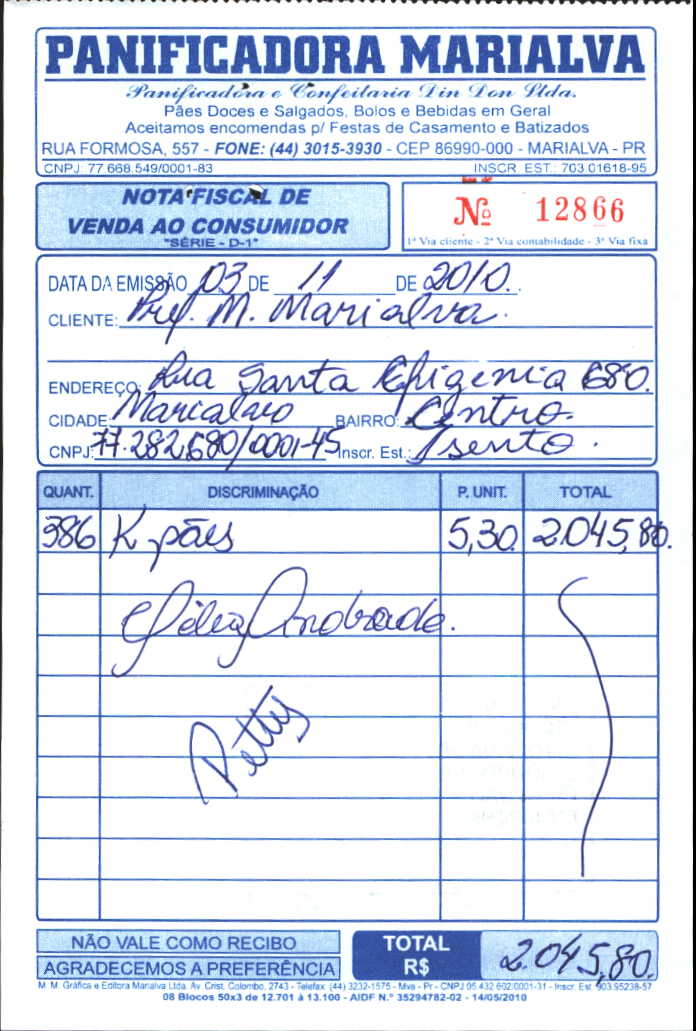 PANIFICADORA MARIALVA
Panificadora e Confeitaria Din Don Ltda.
Pães Doces e Salgados, Bolos e Bebidas em Geral
Aceitamos encomendas p/ Festas de Casamento e Batizados
RUA FORMOSA, 557 - FONE: (44) 3015-3930 - CEP 86990-000 - MARIALVA - PR
CNPJ: 77.668.549/0001-83 INSCR. EST.: 703.01618-95
NOTA FISCAL DE
VENDA AO CONSUMIDOR
"SÉRIE - D-1"
Nº 12866
1ª Via cliente - 2ª Via contabilidade - 3ª Via fixa
DATA DA EMISSÃO 03 DE 11 DE 2010.
CLIENTE: Pref. M. Marialva.
ENDEREÇO: Rua Santa Efigenia 680.
CIDADE: Marialva BAIRRO: Centro.
CNPJ: 77.282.680/0001-45 Inscr. Est.: Isento.
QUANT. DISCRIMINAÇÃO P. UNIT. TOTAL
386 K pães 5,30 2.045,80.
Andrade.
Petty
NÃO VALE COMO RECIBO
AGRADECEMOS A PREFERÊNCIA
TOTAL
R$ 2.045,80.
M. M. Gráfica e Editora Marialva Ltda. Av. Crist. Colombo, 2743 - Telefax: (44) 3232-1575 - Mva - Pr - CNPJ 95.432.602/0001-31 - Inscr. Est. 903.95238-57
08 Blocos 50x3 de 12.701 à 13.100 - AIDF N.º 35294782-02 - 14/05/2010